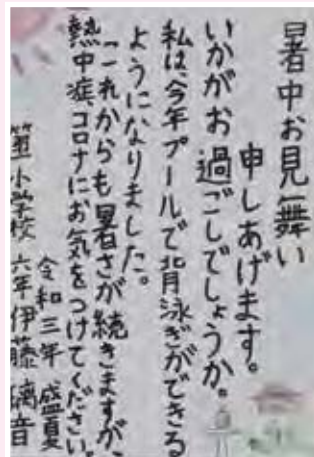 暑中お見舞い
申しあげます。
いかがお過ごしでしょうか。
私は、今年プールで背泳ぎができる
ようになりました。
これからも暑さが続きますが、
熱中症、コロナにお気をつけてください。
令和三年 盛夏
小学校 六年 伊藤 音